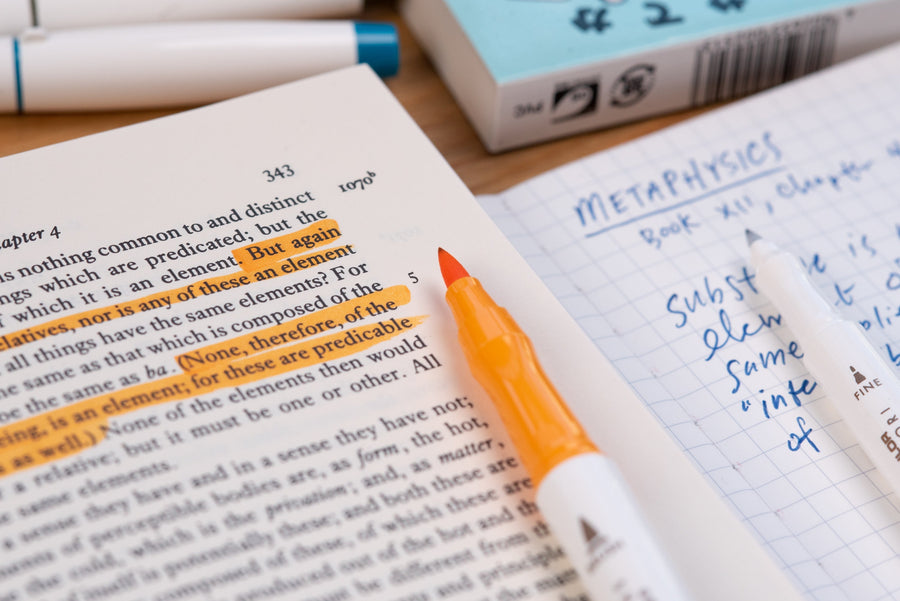 343
1070b
apter 4
is nothing common to and distinct
ngs which are predicated; but the
which it is an element. But again
latives, nor is any of these an element
all things have the same elements? For
e same as that which is composed of the
5
be the same as ba. (None, therefore, of the
eing, is an element; for these are predicable
s as well.) None of the elements then would
a relative; but it must be one or other. All
same elements.
a sense they have and in a sense they have not;
ents of perceptible bodies are, as form, the hot,
the cold, which is the privation; and, as matter,
of itself is potentially these; and both these are
composed of these, of which these are
produced out of the hot and the
must be different from
and principle
# 2 #
PVC
METAPHYSICS
Book XII, Chapter
subst e is
elem t o
same
"inte
of
FINE